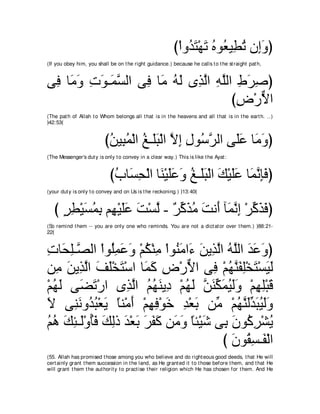 (وَإِن تُطِيعُوهُ تَهْتَدُواْ)
(If you obey him, you shall be on the right guidance.) because he calls to the straight path,
(صِرَطِ اللَّهِ الَّذِى لَهُ مَا فِى السَّمَـوَتِ وَمَا فِى
الاٌّرْضِ)
(The path of Allah to Whom belongs all that is in the heavens and all that is in the earth. ..)
)42:53(
(وَمَا عَلَى الرَّسُولِ إِلاَّ الْبَلَـغُ الْمُبِينُ)
(The Messenger's duty is only to convey in a clear way.) This is like the Ayat:
(فَإِنَّمَا عَلَيْكَ الْبَلَـغُ وَعَلَيْنَا الْحِسَابُ)
(your duty is only to convey and on Us is the reckoning.) (13:40)
(فَذَكِّرْ إِنَّمَآ أَنتَ مُذَكِّرٌ - لَّسْتَ عَلَيْهِم بِمُسَيْطِرٍ )
(So remind them -- you are only one who reminds. You are not a dictator over them.) )88:21-
22(
(وَعَدَ اللَّهُ الَّذِينَ ءَامَنُواْ مِنْكُمْ وَعَمِلُواْ الصَّـلِحَاتِ
لَيَسْتَخْلِفَنَّهُمْ فِى الاٌّرْضِ كَمَا اسْتَخْلَفَ الَّذِينَ مِن
قَبْلِهِمْ وَلَيُمَكِّنَنَّ لَهُمْ دِينَهُمُ الَّذِى ارْتَضَى لَهُمْ
وَلَيُبَدِّلَنَّهُمْ مِّن بَعْدِ خَوْفِهِمْ أَمْناً يَعْبُدُونَنِى لاَ
يُشْرِكُونَ بِى شَيْئاً وَمَن كَفَرَ بَعْدَ ذلِكَ فَأُوْلَـئِكَ هُمُ
الْفَـسِقُونَ )
(55. Allah has promised those among you who believe and do righteous good deeds, that He will
certainly grant them succession in the land, as He granted it to those before them, and that He
will grant them the authority to practise their religion which He has chosen for them. And He